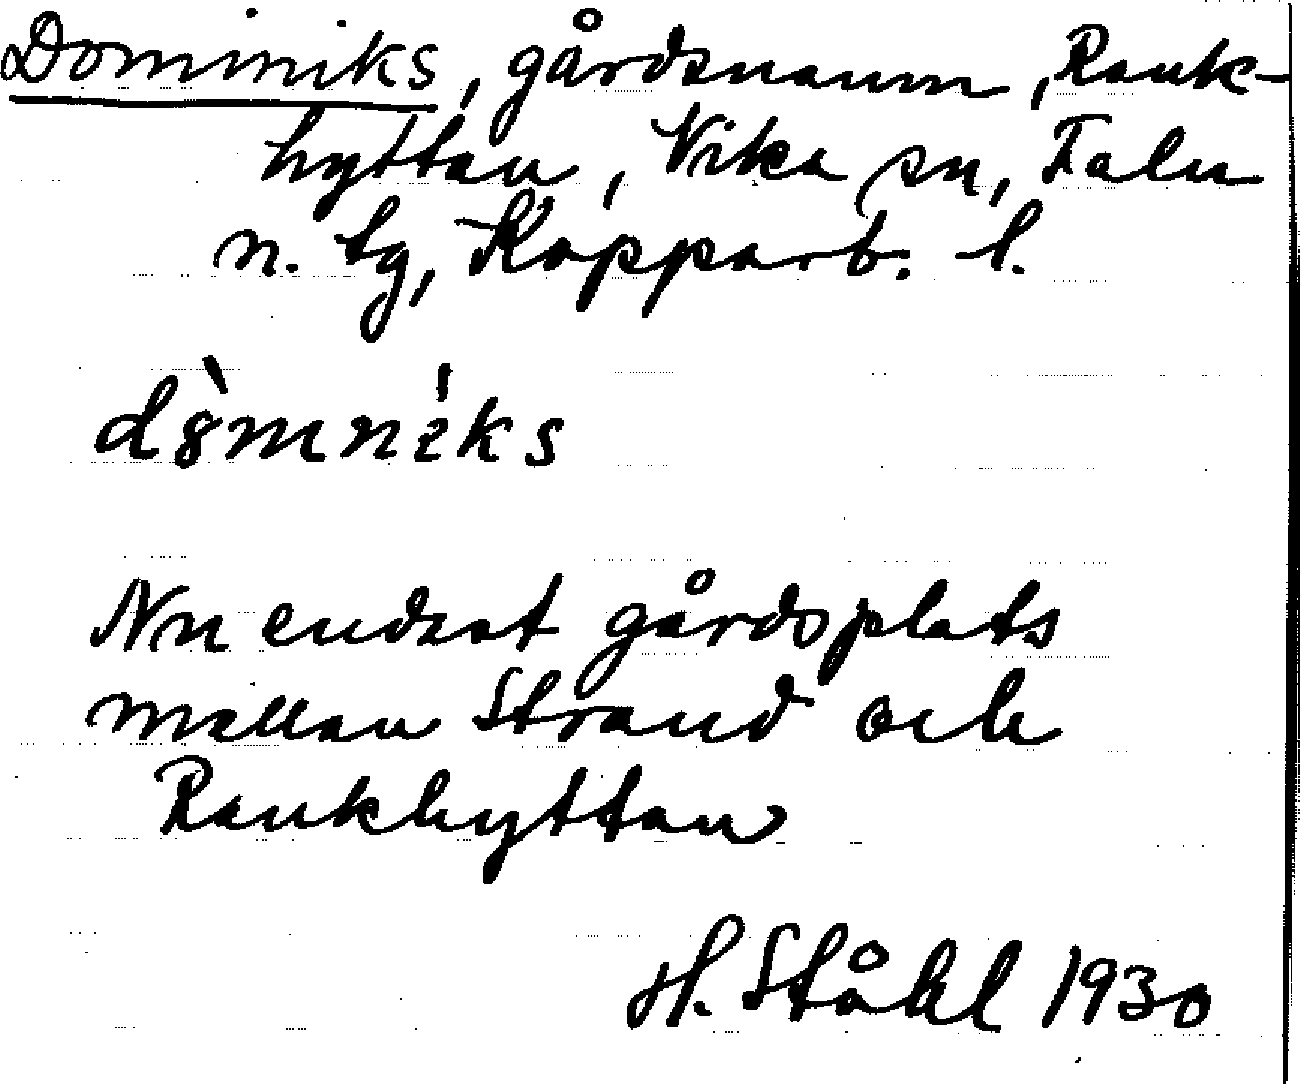 Dominiks, gårdsnamn, Rank-
hyttan, Vika sn, Falu
n. tg, Kopparb. l.
d8̀mnèks
Nu endast gårdsplats
mellan Strand och
Rankhyttan
H. Ståhl 1930